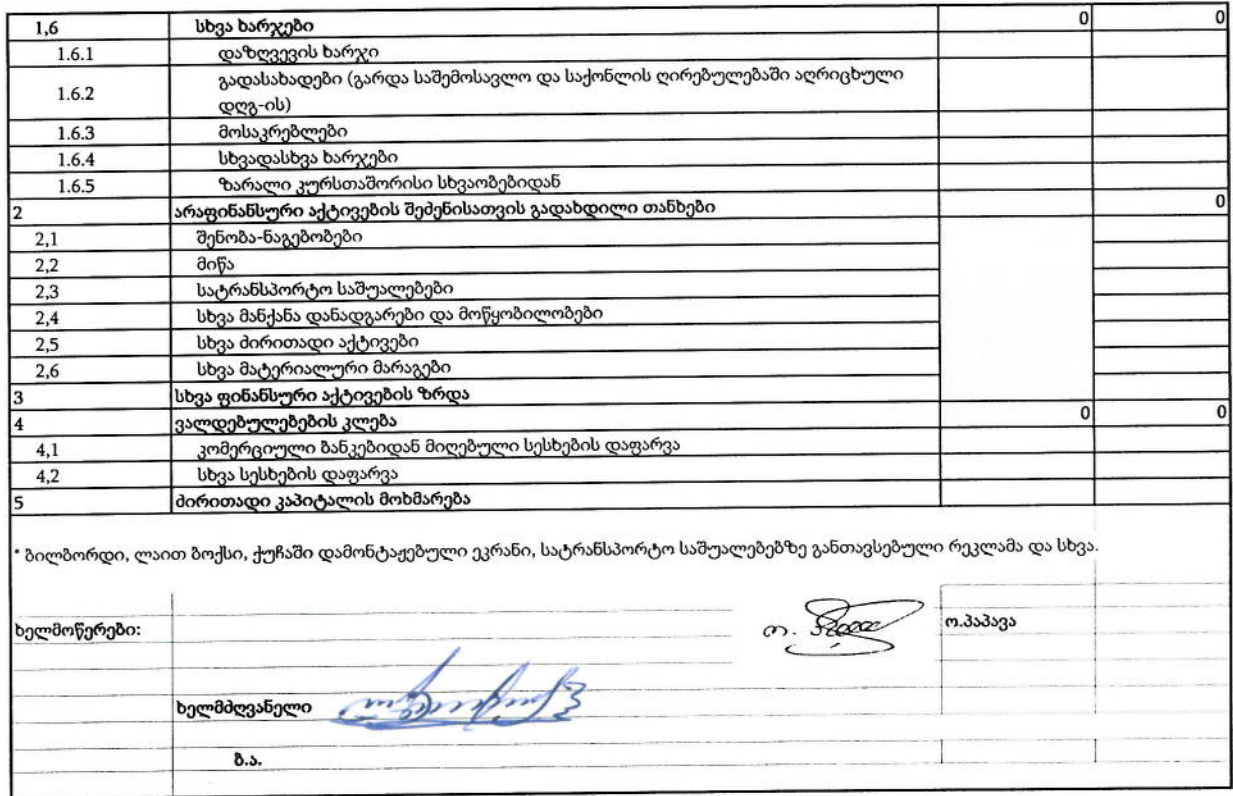 1,6 სხვა ხარჯები 0 0
1.6.1 დაზღვევის ხარჯი
1.6.2 გადასახადები (გარდა საშემოსავლო და საქონლის ღირებულებაში აღრიცხული
დღგ-ის)
1.6.3 მოსაკრებლები
1.6.4 სხვადასხვა ხარჯები
1.6.5 ზარალი კურსთაშორისი სხვაობებიდან
2 არაფინანსური აქტივების შეძენისათვის გადახდილი თანხები 0
2,1 შენობა-ნაგებობები
2,2 მიწა
2,3 სატრანსპორტო საშუალებები
2,4 სხვა მანქანა დანადგარები და მოწყობილობები
2,5 სხვა ძირითადი აქტივები
2,6 სხვა მატერიალური მარაგები
3 სხვა ფინანსური აქტივების ზრდა
4 ვალდებულებების კლება 0 0
4,1 კომერციული ბანკებიდან მიღებული სესხების დაფარვა
4,2 სხვა სესხების დაფარვა
5 ძირითადი კაპიტალის მოხმარება
* ბილბორდი, ლაით ბოქსი, ქუჩაში დამონტაჟებული ეკრანი, სატრანსპორტო საშუალებებზე განთავსებული რეკლამა და სხვა.
ხელმოწერები: ო.პაპავა
ხელმძღვანელი
ბ.ა.